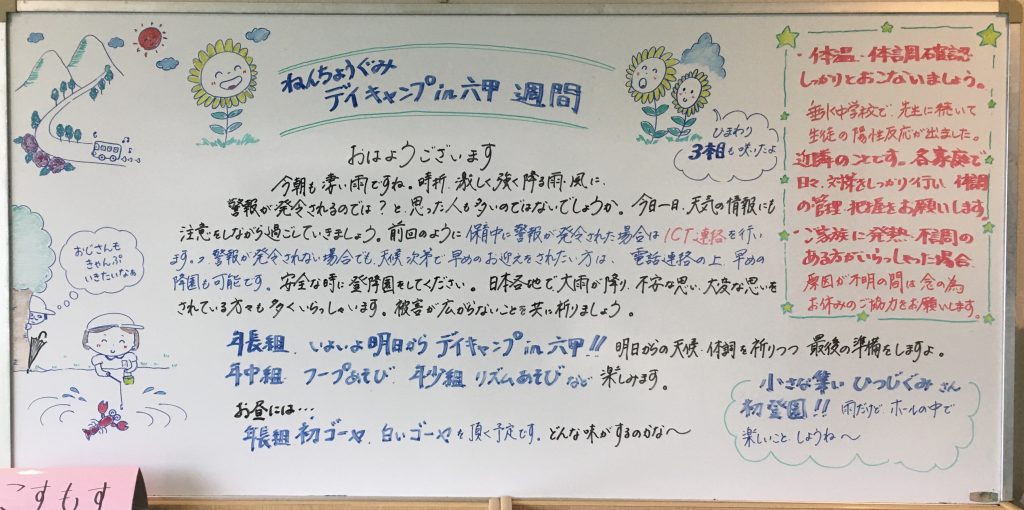 ねんちょうぐみ
デイキャンプin六甲 週間
ひまわり
3本目も咲いたよ
おはようございます
今朝も凄い雨ですね。時折、激しく強く降る雨・風に、
警報が発令されるのでは？と、思った人も多いのではないでしょうか。今日一日、天気の情報にも
注意をしながら過ごしていきましょう。前回のように保育中に警報が発令された場合はICT連絡を行い
ます。警報が発令されない場合でも、天候次第で早めのお迎えをされたい方は、電話連絡の上、早めの
降園も可能です。安全な時に登降園をしてください。日本各地で大雨が降り、不安な思い、大変な思いを
されている方々も多くいらっしゃいます。被害が広がらないことを共に祈りましょう。
年長組、いよいよ明日からデイキャンプin六甲!! 明日からの天候、体調を祈りつつ最後の準備をしますよ。
年中組 フープあそび、年少組 リズムあそびなど楽しみます。
お昼には…
年長組 初ゴーヤ、白いゴーヤを頂く予定です。どんな味がするのかな〜
おじさんも
きゃんぷ
いきたいなぁ
・体温・体調確認
しっかりとおこないましょう。
垂水中学校で、先生に続いて
生徒の陽性反応が出ました。
近隣のことです。各家庭で
日々、対策をしっかり行い 体調
の管理・把握をお願いします。
・ご家族に発熱・不調の
ある方がいらっしゃった場合、
原因が不明の間は念の為
お休みのご協力をお願いします。
小さな集い ひつじぐみさん
初登園!! 雨だけど ホールの中で
楽しいこと しようね〜
こすもす